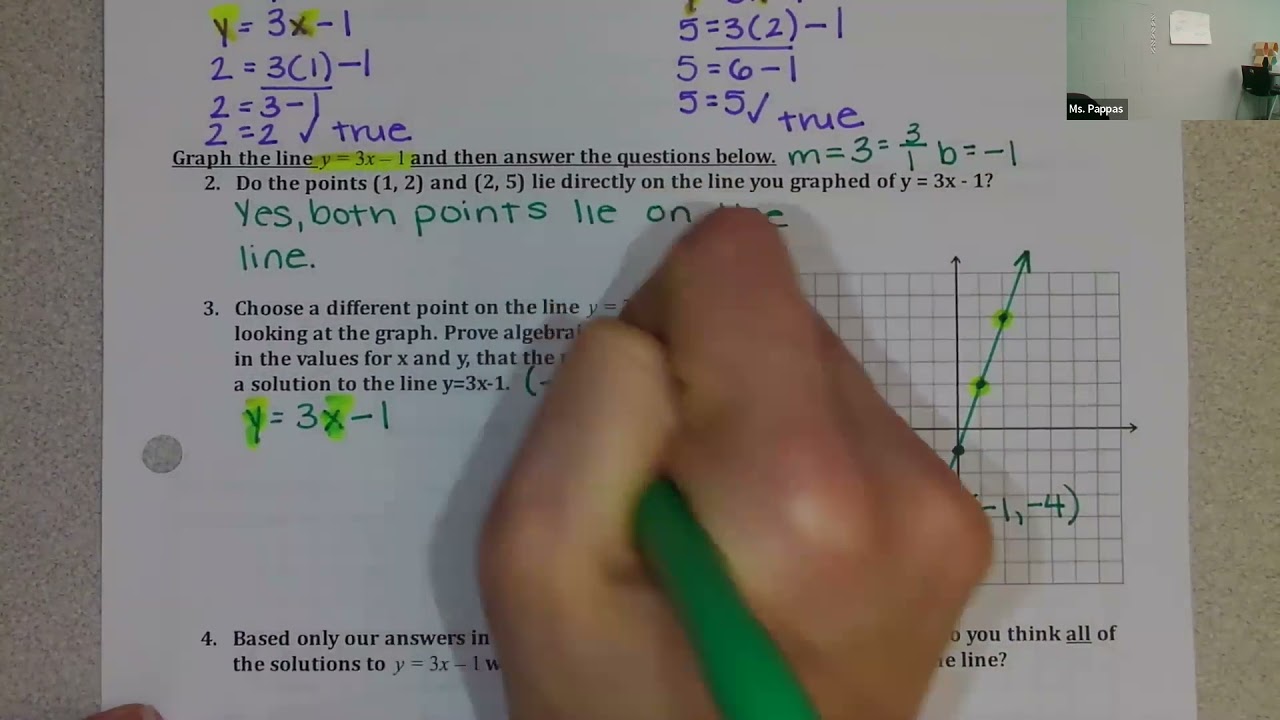 y = 3x - 1
2 = 3(1) - 1
2 = 3 - 1
2 = 2 ✓ true
5 = 3(2) - 1
5 = 6 - 1
5 = 5 ✓ true
Ms. Pappas
Graph the line y = 3x – 1 and then answer the questions below. m = 3 = 3/1 b = -1
2. Do the points (1, 2) and (2, 5) lie directly on the line you graphed of y = 3x - 1?
Yes, both points lie on
line.
3. Choose a different point on the line y =
looking at the graph. Prove
in the values for x and y, that the
a solution to the line y=3x-1. (-
y = 3x - 1
-1, -4)
4. Based only our answers in you think all of
the solutions to y = 3x – 1 line?